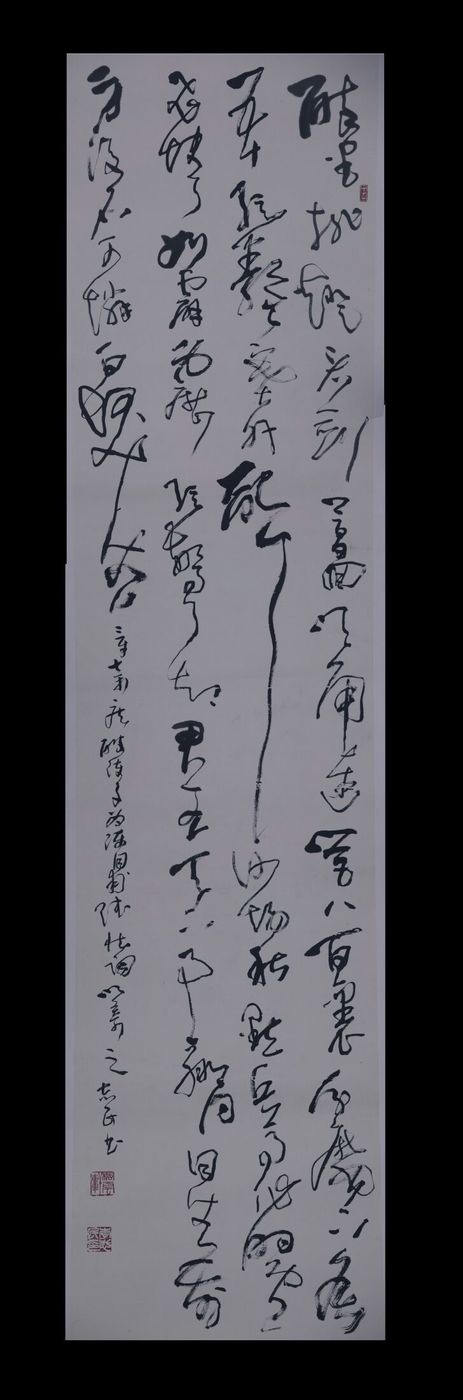 醉里挑燈看劍夢回吹角連營八百里分麾下炙
五十弦翻塞外聲沙場秋點兵馬作的盧
飛快弓如霹靂弦驚了却君王天下事贏得生前
身後名可憐白髮生辛棄疾破陣子為陳同甫賦壯詞以寄之